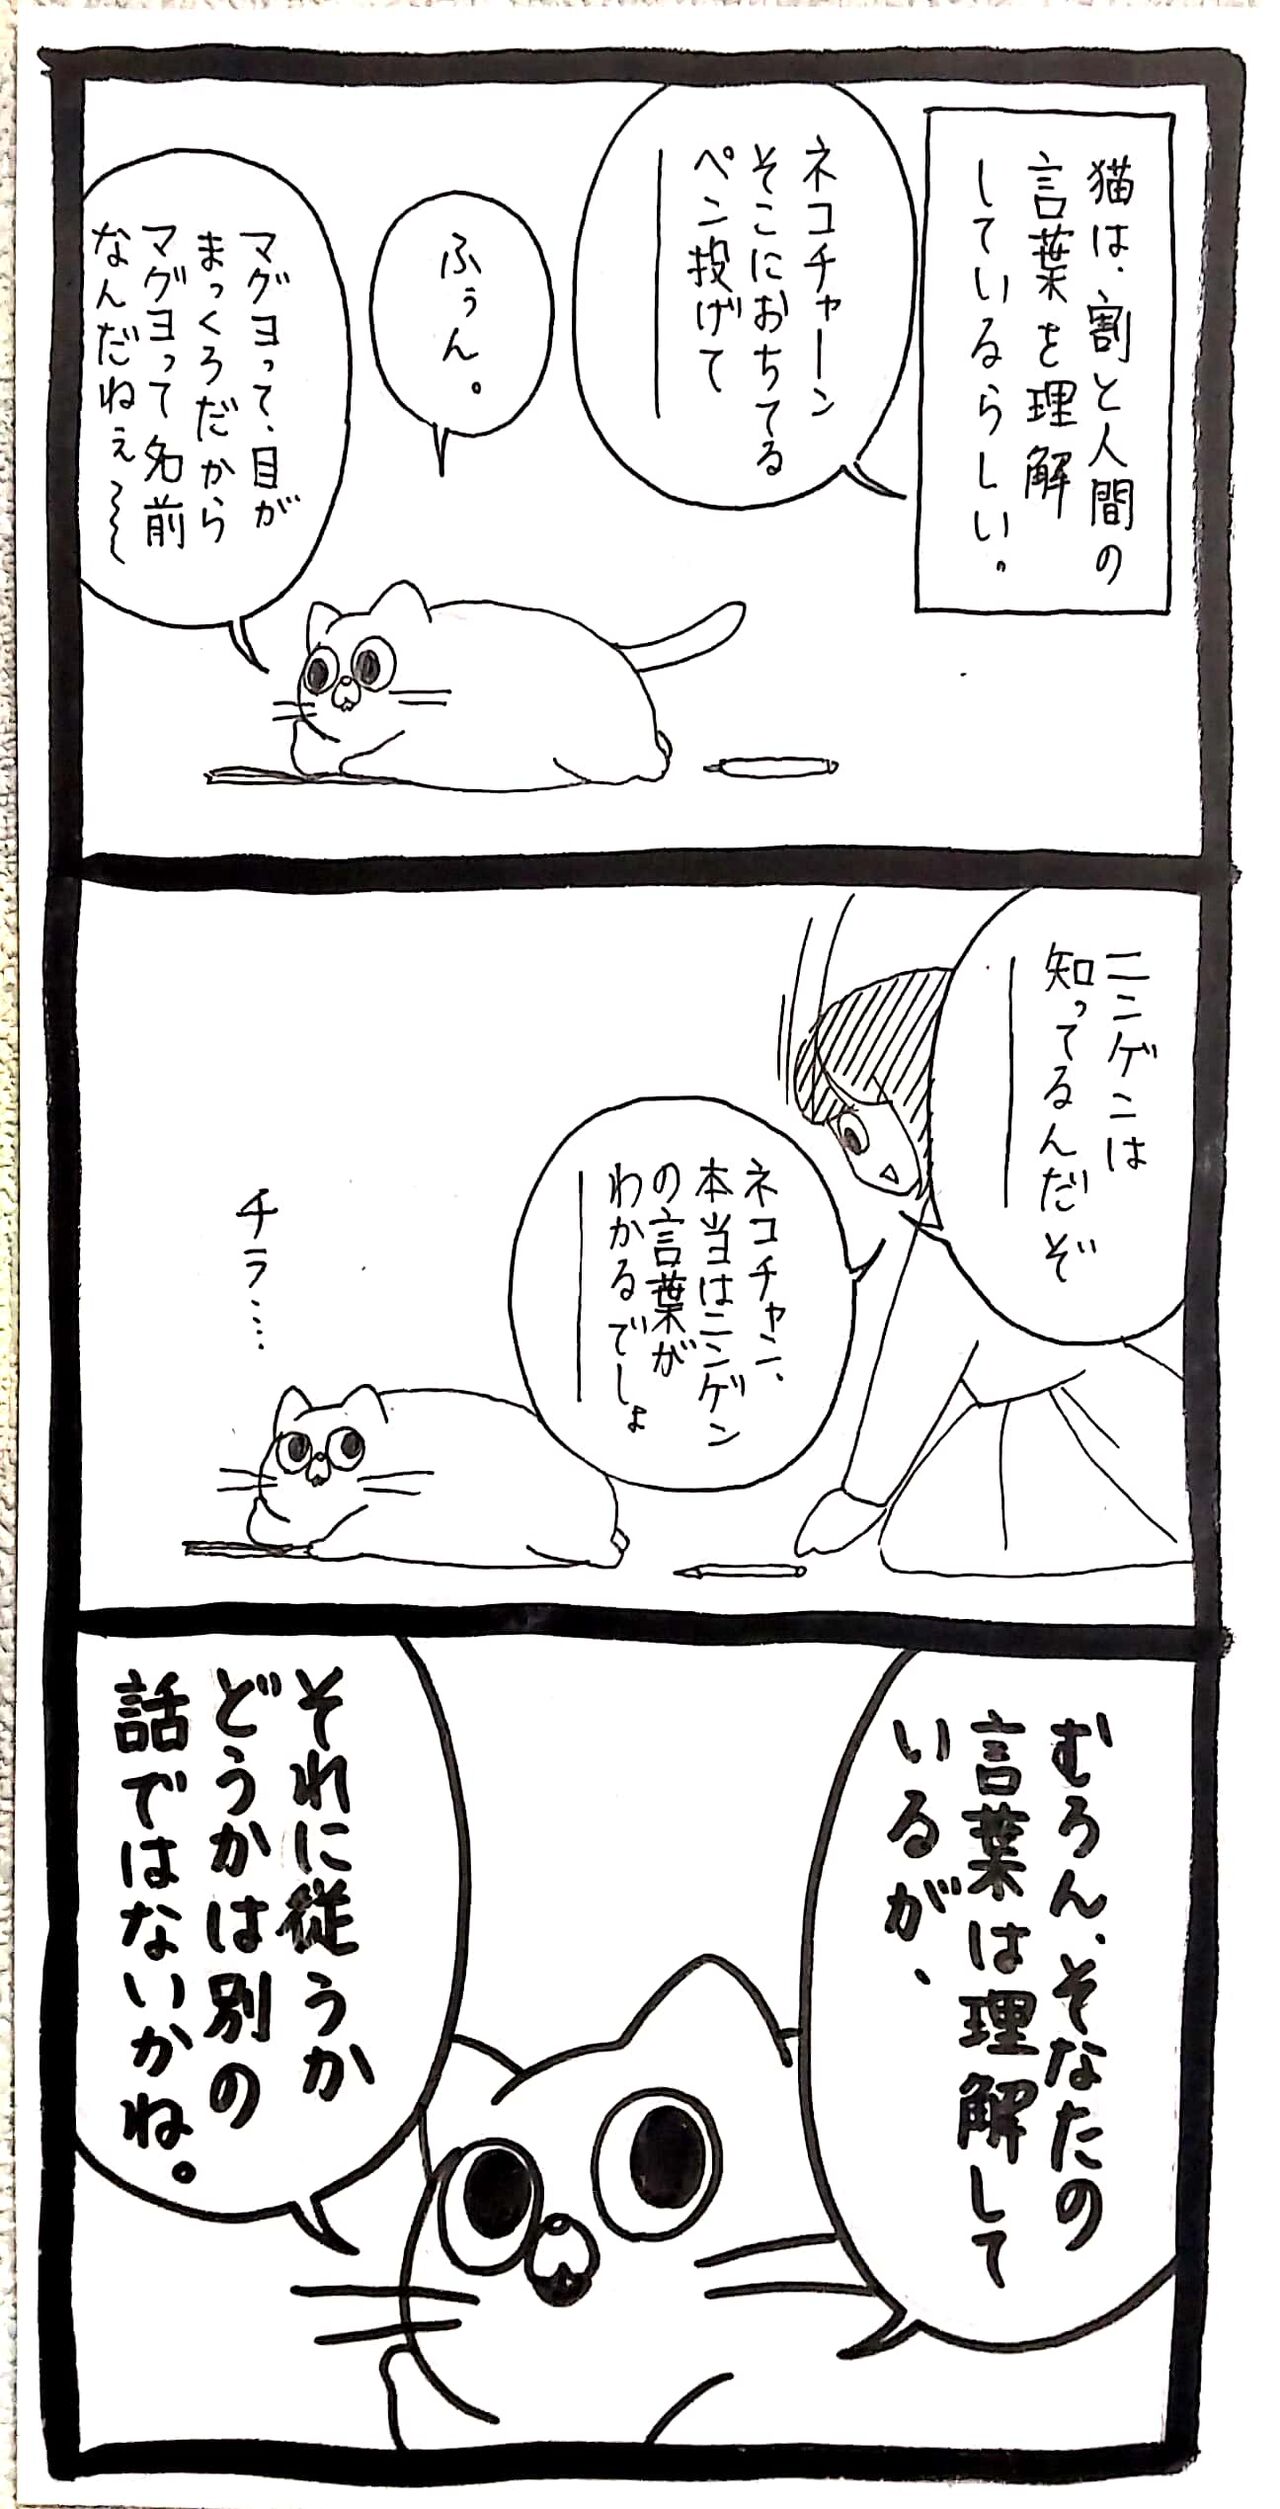 猫は、割と人間の
言葉を理解
しているらしい。
ネコチャーン
そこにおちてる
ペン投げて
ーー
ふぅん。
マグヨって、目が
まっくろだから
マグヨって名前
なんだねぇ〜〜
ニンゲンは
知ってるんだぞ
ーー
ネコチャン、
本当はニンゲン
の言葉が
わかるでしょ
ーー
チラ…
むろん、そなたの
言葉は理解して
いるが、
それに従うか
どうかは別の
話ではないかね。